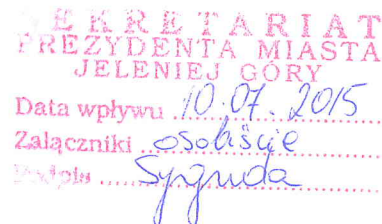 SEKRETARIAT
PREZYDENTA MIASTA
JELENIEJ GÓRY
Data wpływu 10.07.2015
Załączniki osobiście
Podpis Sygnuda